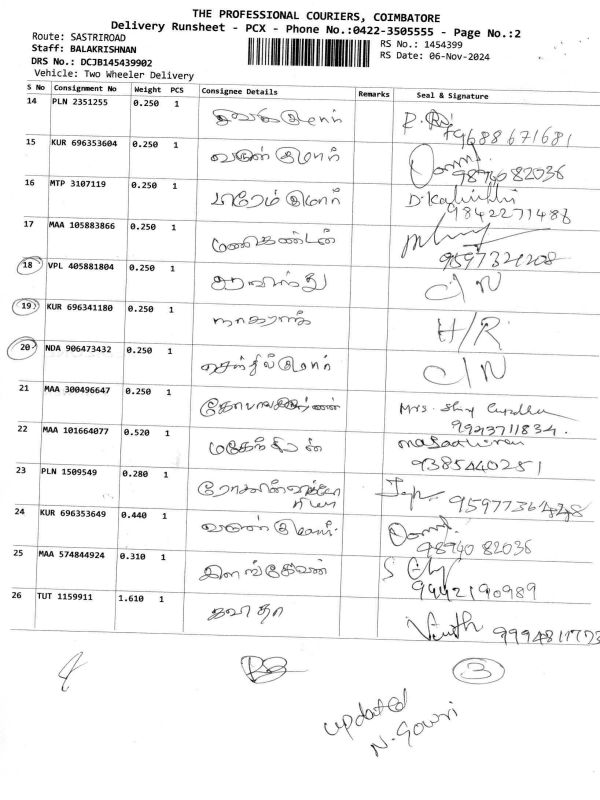 THE PROFESSIONAL COURIERS, COIMBATORE
Delivery Runsheet - PCX - Phone No.:0422-3505555 - Page No.:2
Route: SASTRIROAD
RS No.: 1454399
Staff: BALAKRISHNAN
RS Date: 06-Nov-2024
DRS No.: DCJB145439902
Vehicle: Two Wheeler Delivery
S No Consignment No Weight PCS Consignee Details Remarks Seal & Signature
14 PLN 2351255 0.250 1 சிவக்குமார்
9688671681
15 KUR 696353604 0.250 1 வருண் குமார்
9894082036
16 MTP 3107119 0.250 1 பிரேம் குமார்
9842271486
17 MAA 105883866 0.250 1 மணிகண்டன்
9597321208
18 VPL 405881804 0.250 1 C/N
19 KUR 696341180 0.250 1 நாகராஜ் H/R.
20 NDA 906473432 0.250 1 செந்தில்குமார் C/N
21 MAA 300496647 0.250 1 Mrs.
9943711834.
22 MAA 101664077 0.520 1
9385440251
23 PLN 1509549 0.280 1
24 KUR 696353649 0.440 1 வருண் குமார்.
98940 82036
25 MAA 574844924 0.310 1
9442190989
26 TUT 1159911 1.610 1 கவிதா
9994811773
3
updated
N. Gowri